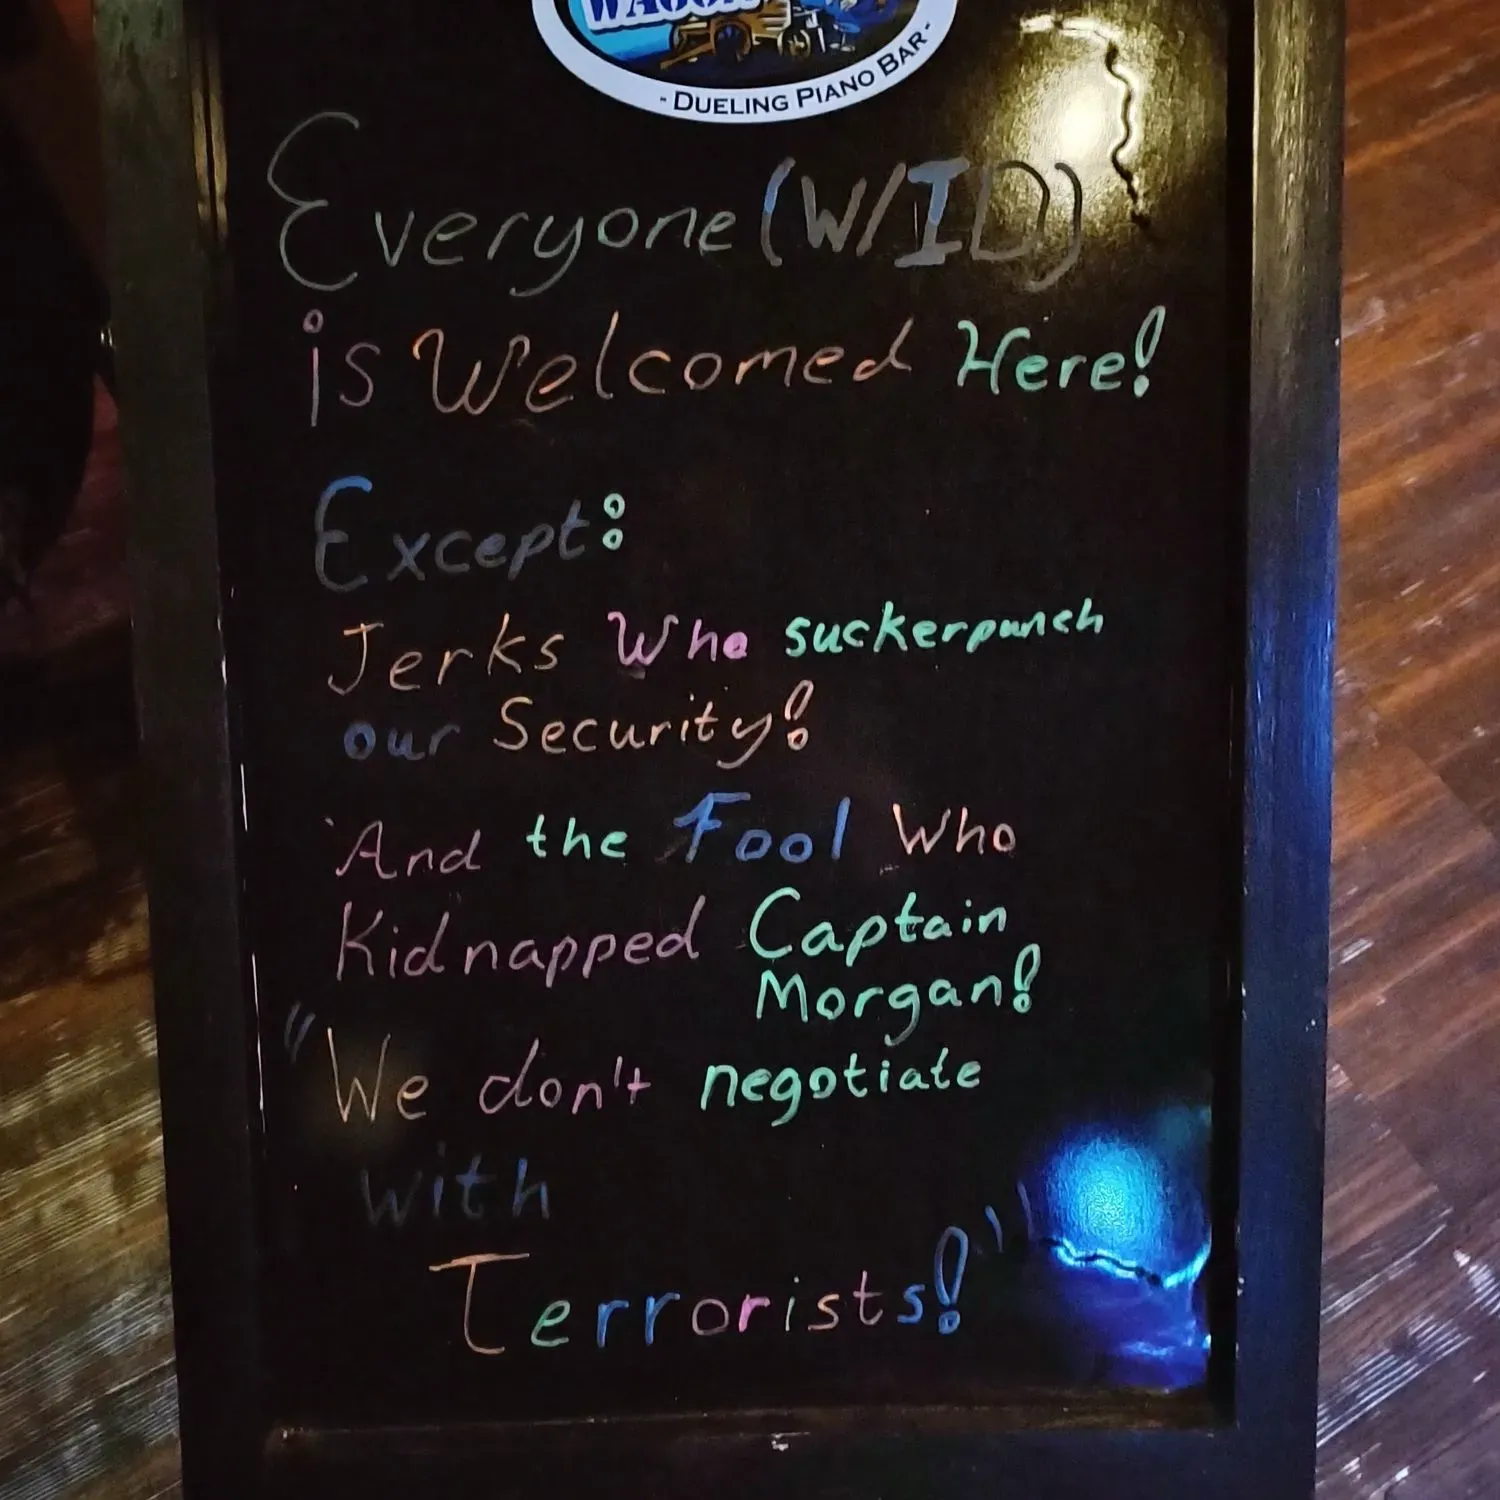 WAGON
- DUELING PIANO BAR -
Everyone (W/ID)
is Welcomed Here!
Except:
Jerks Who suckerpunch
our Security!
And the Fool Who
Kidnapped Captain
Morgan!
"We don't negotiate
with
Terrorists!"